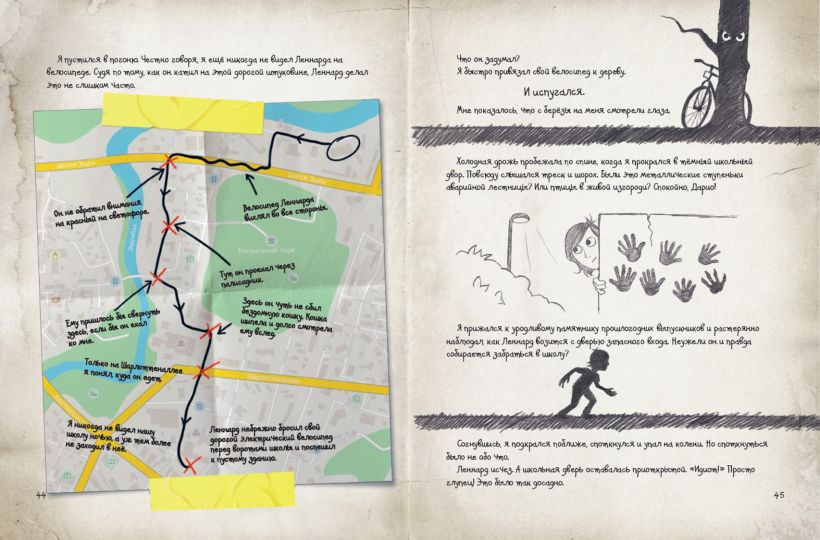 Я пустился в погоню. Честно говоря, я ещё никогда не видел Леннарда на
велосипеде. Судя по тому, как он катил на этой дорогой штуковине, Леннард делал
это не слишком часто.
Шоссе Эшен
Шоссе Эшен
Он не обратил внимания
на красный на светофоре.
Велосипед Леннарда
вихлял во все стороны.
Эшенбах
Театральный парк
Тут он проехал через
палисадник.
Ему пришлось бы свернуть
здесь, если бы он ехал
ко мне.
Здесь он чуть не сбил
бездомную кошку. Кошка
шипела и долго смотрела
ему вслед.
Только на Шарлоттеналлее
я понял, куда он едет.
Шарлоттеналлее
Я никогда не видел нашу
школу ночью, а уж тем более
не заходил в неё.
Леннард небрежно бросил свой
дорогой электрический велосипед
перед воротами школы и поспешил
к пустому зданию.
44
Что он задумал?
Я быстро привязал свой велосипед к дереву.
И испугался.
Мне показалось, что с берёзы на меня смотрели глаза.
Холодная дрожь пробежала по спине, когда я прокрался в тёмный школьный
двор. Повсюду слышался треск и шорох. Были это металлические ступеньки
аварийной лестницы? Или птицы в живой изгороди? Спокойно, Дарио!
Я прижался к уродливому памятнику прошлогодних выпускников и растерянно
наблюдал, как Леннард возится с дверью запасного входа. Неужели он и правда
собирается забраться в школу?
Согнувшись, я подкрался поближе, споткнулся и упал на колени. Но споткнуться
было не обо что.
Леннард исчез. А школьная дверь оставалась приоткрытой. «Идиот!» Просто
глупец! Это было так досадно.
45